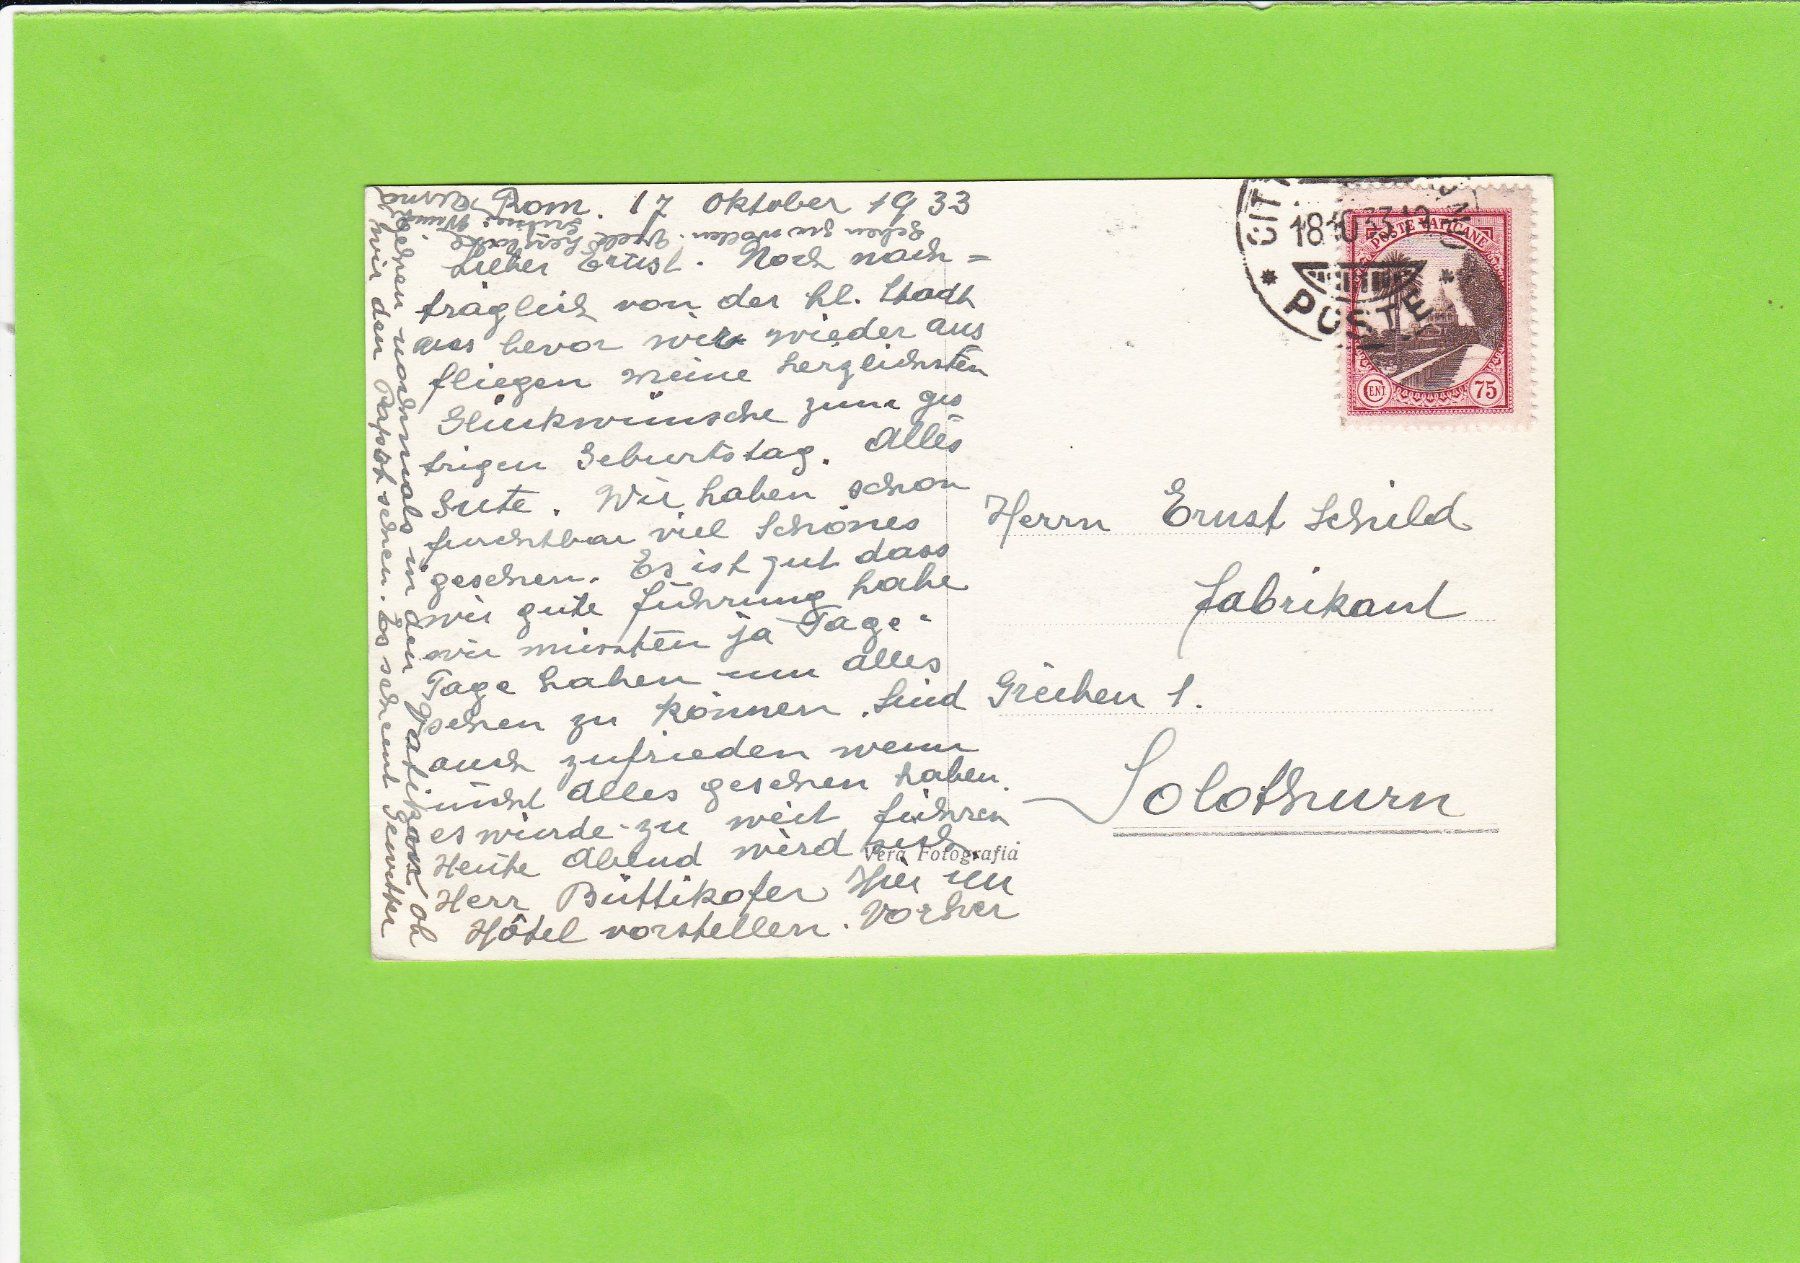 Rom. 17 Oktober 1933
Lieber Ernst. Noch nach=
träglich von der hl. Stadt
aus bevor wir wieder aus
fliegen meine herzlichsten
Glückwünsche zum ges
trigen Geburtstag. Alles
Gute. Wir haben schon
furchtbar viel Schönes
gesehen. Es ist gut dass
wir gute Führung habe
wir müssten ja Tage-
Tage haben um alles
sehen zu können. Sind
auch zufrieden wenn
nicht alles gesehen haben.
es würde zu weit führen
Heute Abend wird sich
Herr Büttikofer hier im
Hôtel vorstellen. Vorher
gehen nochmals in den Vatikan ob
wir den Papst sehen. Es scheint Gewitter
geben zu wollen. Viele herzliche
Grüsse
Vera Fotografia
CITTÀ
18.10.33.19
POSTE
POSTE VATICANE
CENT 75
Herrn Ernst Schild
Fabrikant
Greiben 1.
Solothurn